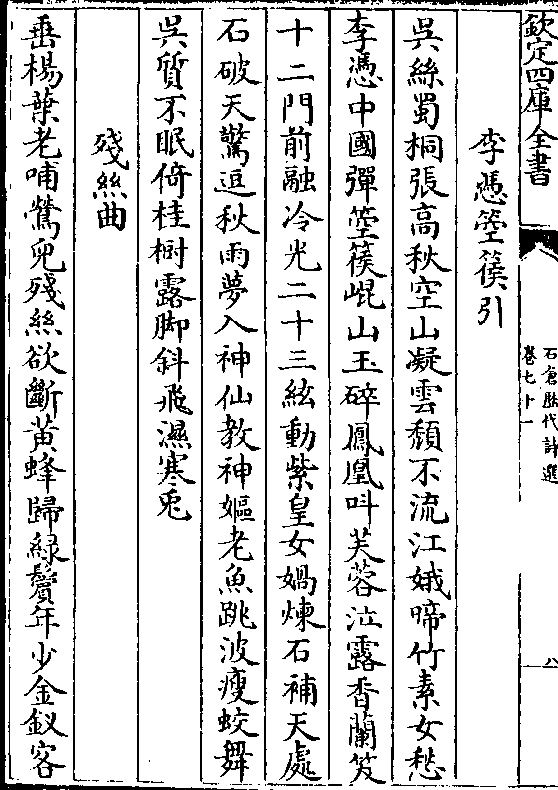 欽定四庫全書
石倉歷代詩選
卷七十一
八
李憑箜篌引
吳絲蜀桐張高秋空山凝雲頹不流江娥啼竹素女愁
李憑中國彈箜篌崐山玉碎鳳凰叫芙蓉泣露香蘭笑
十二門前融冷光二十三絃動紫皇女媧煉石補天處
石破天驚逗秋雨夢入神仙教神嫗老魚跳波瘦蛟舞
吳質不眠倚桂樹露脚斜飛濕寒兎
殘絲曲
垂楊葉老哺鶯兒殘絲欲斷黄蜂歸緑鬢年少金釵客